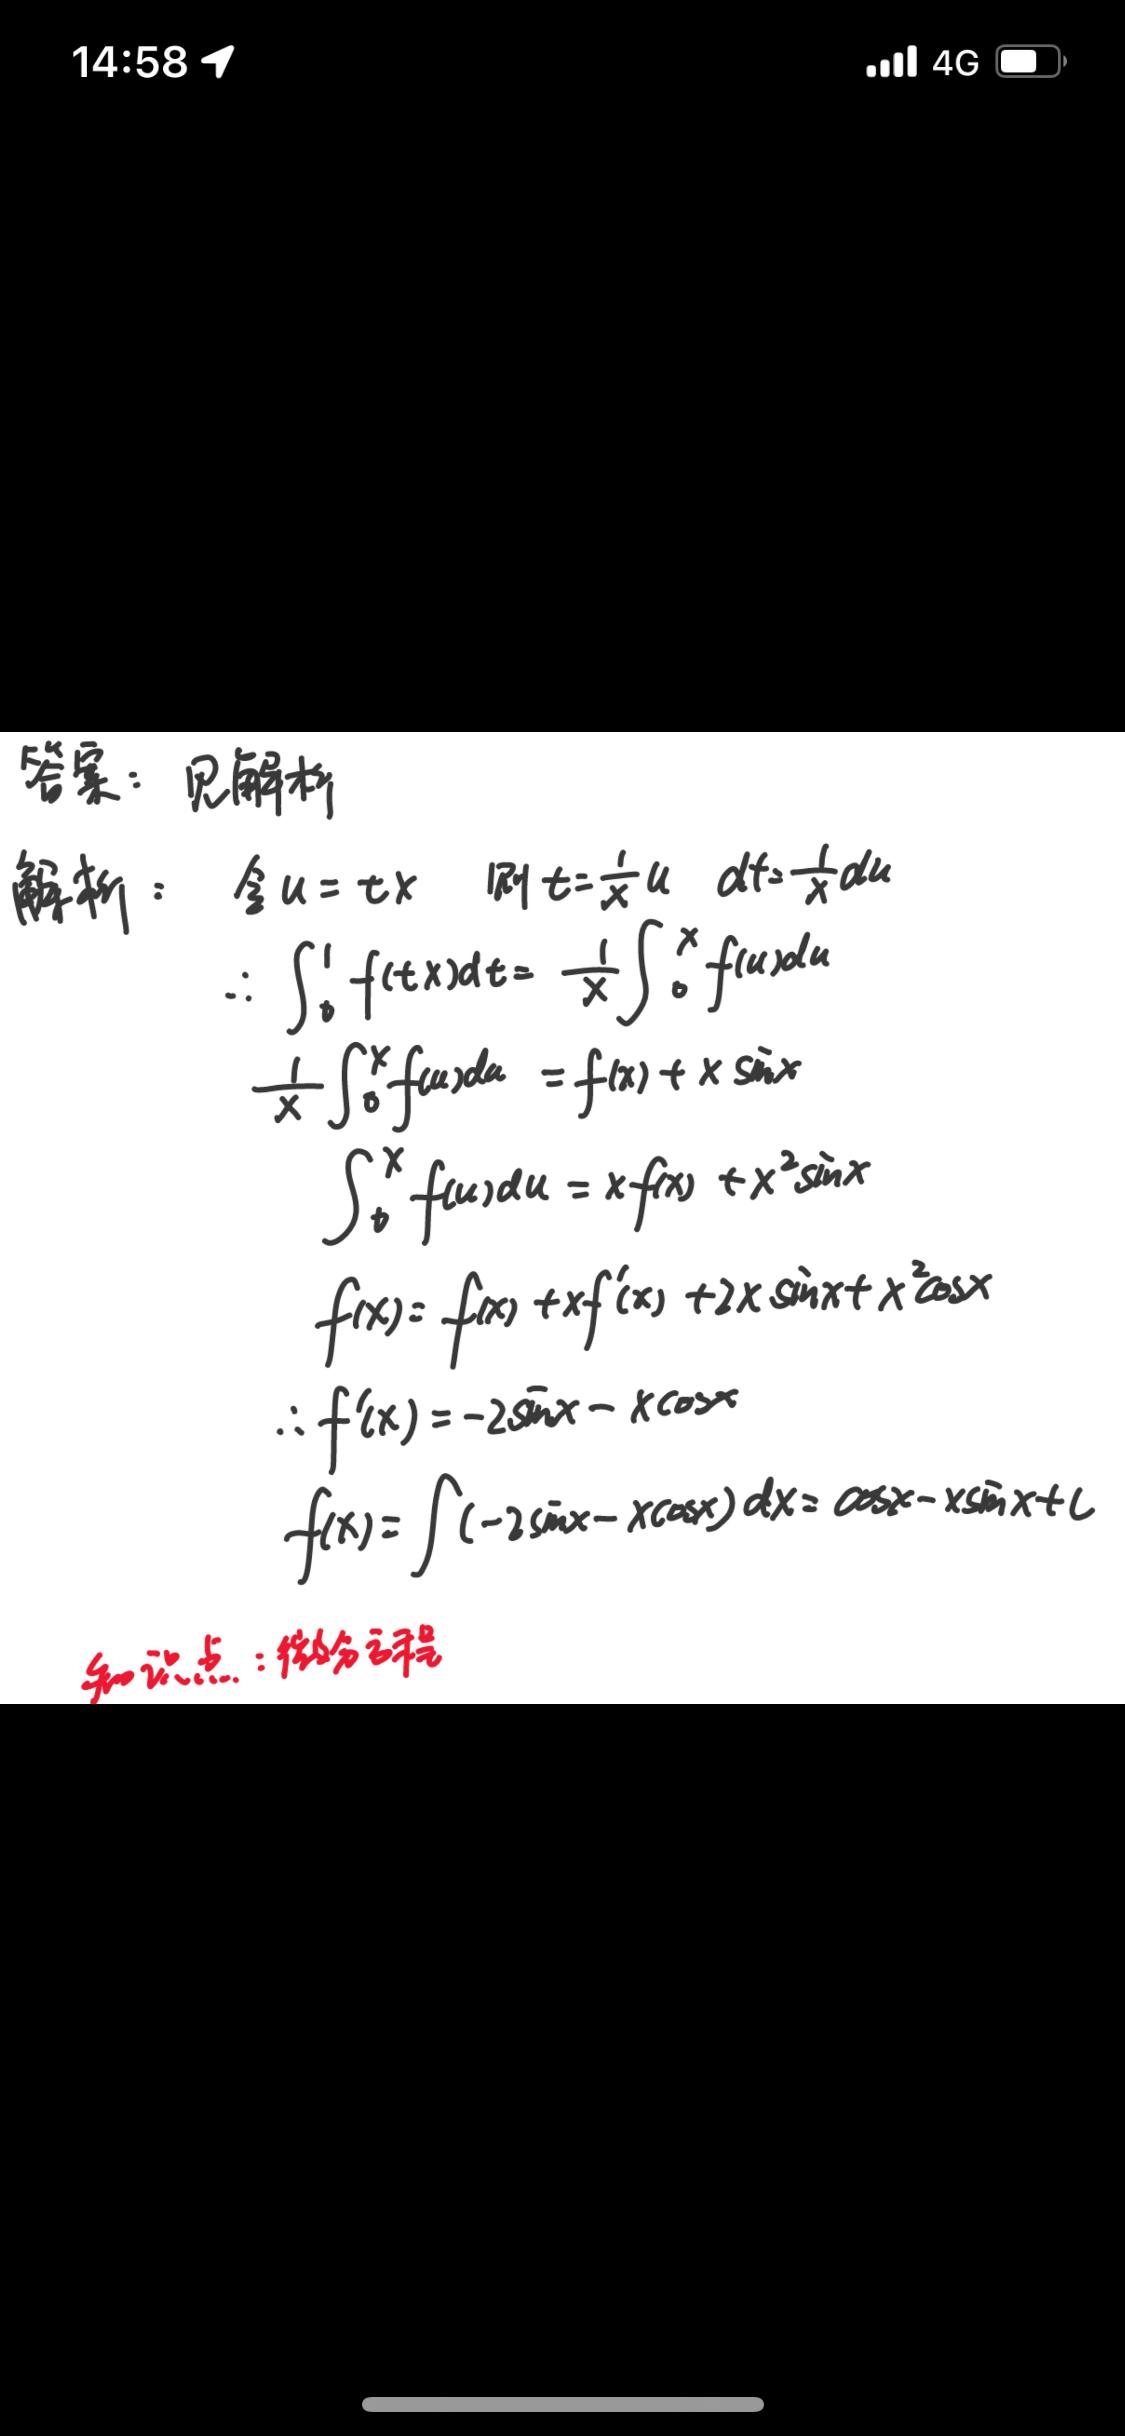 14:58 4G
答案：见解析
解析：令 u = tx 则 t = 1/x u dt = 1/x du
∴ ∫₀¹ f(tx)dt = 1/x ∫₀ˣ f(u)du
1/x ∫₀ˣ f(u)du = f(x) + x sinx
∫₀ˣ f(u)du = xf(x) + x²sinx
f(x) = f(x) + xf'(x) + 2x sinx + x²cosx
∴ f'(x) = -2sinx - xcosx
f(x) = ∫(-2sinx - xcosx)dx = cosx - xsinx + C
知识点：微分方程